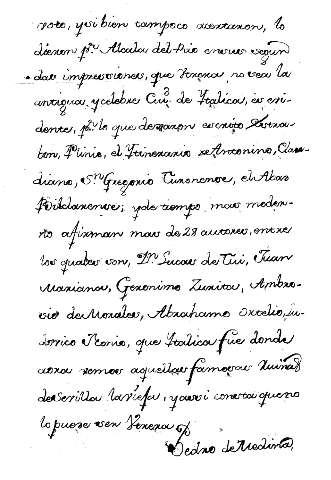 voto, y si bien tampoco acertaron, lo
dieron p.r Alcala del Rio en sus segun
das impressiones, que Utrera, no sea la
antigua, y celebre Ciu.d de Italica, es evi-
dente, p.r lo que dexaron escrito Estra-
bon, Plinio, el Itinerario de Antonino, Clau-
diano, S.n Gregorio Turonense, el Abad
Biclarense; y de tiempo mas moder-
no afirman mas de 28 autores, entre
los quales son, D.n Lucas de Tui, Juan
Mariana, Geronimo Zurita, Ambro-
sio de Morales, Abrahamo Ortelio, Lu-
dovico Nonio, que Italica fue donde
aora vemos aquellas famosas Ruinas
de Sevilla la vieja, y assi consta que no
lo puede ser Utrera
Pedro de Medina